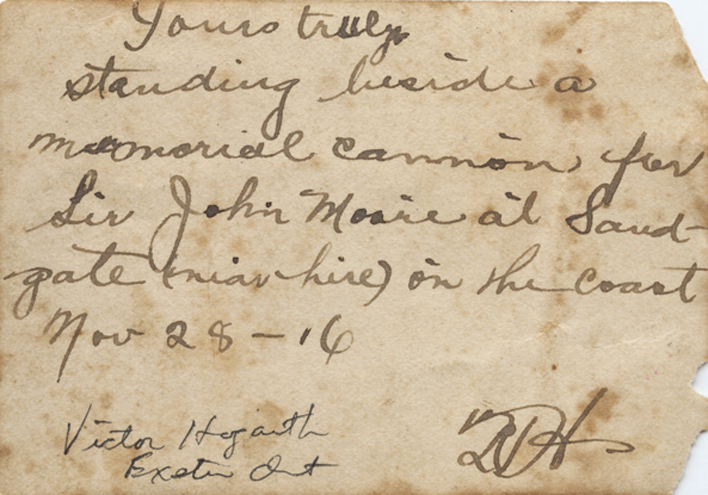 Yours truly
standing beside a
memorial cannon for
Sir John Moore at Sand-
gate (near here) on the coast
Nov 28 - 16
Victor Hogarth
Exeter Ont